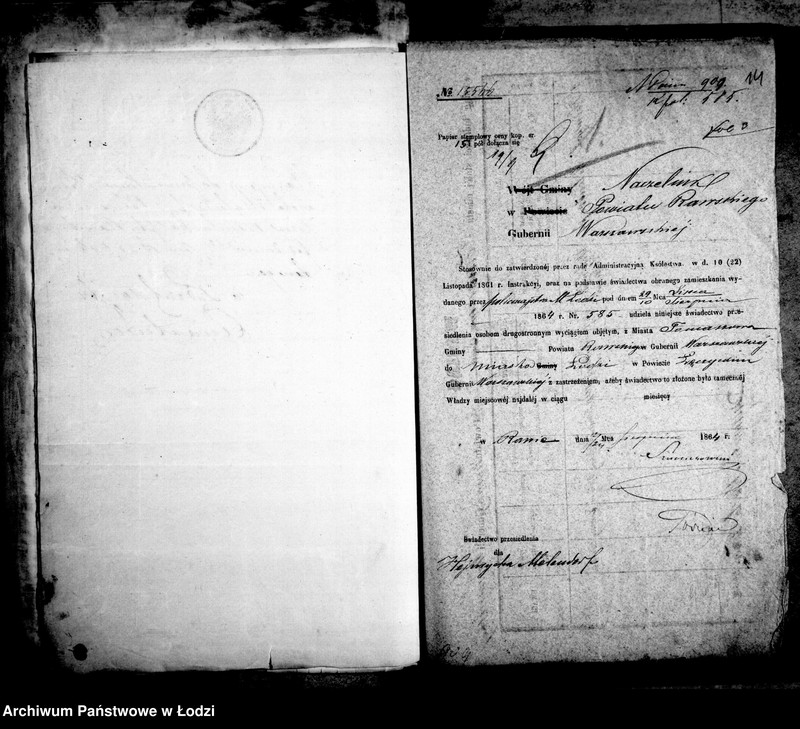 № 15566
N Dzien. 909
14
N fol: 585.
Papier stemplowy ceny kop. sr.
15 i pół dołącza się
19/9
Naczelnik
Wójt Gminy
w Powiecie Powiatu Rawskiego
Gubernii Warszawskiéj
Stosownie do zatwierdzonéj przez radę Administracyjną Królestwa w d. 10 (22)
Listopada 1861 r. Instrukcyi, oraz na podstawie świadectwa obranego zamieszkania wy-
danego przez M. Łodzi pod dniem 29/10 Mca Lipca Sierpnia
1864 r. Nr. 585 udziela niniejsze świadectwo prze-
siedlenia osobom drugostronnym wyciągiem objętym, z Miasta Tomaszowa
Gminy Powiatu Rawskiego w Gubernii Warszawskiéj
do miasta Gminy Łodzi w Powiecie Łęczyckim
Gubernii Warszawskiéj z zastrzeżeniem, ażeby świadectwo to złożone było tamecznéj
Władzy miejscowéj najdaléj w ciągu miesięcy
w Rawie dnia Mca Sierpnia 1864 r.
Świadectwo przesiedlenia
dla
Hejnrycha Melendorf
Archiwum Państwowe w Łodzi